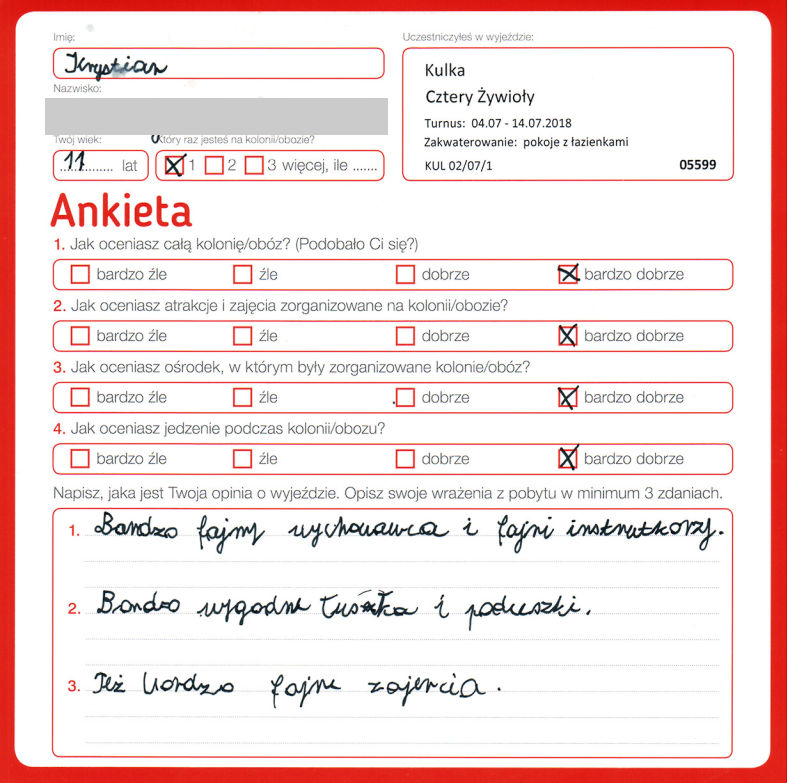 Imię:
Krystian
Nazwisko:
Twój wiek:
11 lat
Który raz jesteś na kolonii/obozie?
1 2 3 więcej, ile .......
Uczestniczyłeś w wyjeździe:
Kulka
Cztery Żywioły
Turnus: 04.07 - 14.07.2018
Zakwaterowanie: pokoje z łazienkami
KUL 02/07/1 05599
Ankieta
1. Jak oceniasz całą kolonię/obóz? (Podobało Ci się?)
bardzo źle źle dobrze bardzo dobrze
2. Jak oceniasz atrakcje i zajęcia zorganizowane na kolonii/obozie?
bardzo źle źle dobrze bardzo dobrze
3. Jak oceniasz ośrodek, w którym były zorganizowane kolonie/obóz?
bardzo źle źle dobrze bardzo dobrze
4. Jak oceniasz jedzenie podczas kolonii/obozu?
bardzo źle źle dobrze bardzo dobrze
Napisz, jaka jest Twoja opinia o wyjeździe. Opisz swoje wrażenia z pobytu w minimum 3 zdaniach.
1. Bardzo fajny wychowawca i fajni instrutkorzy.
2. Bardzo wygodne i poduszki.
3. Też bardzo fajne zajencia.